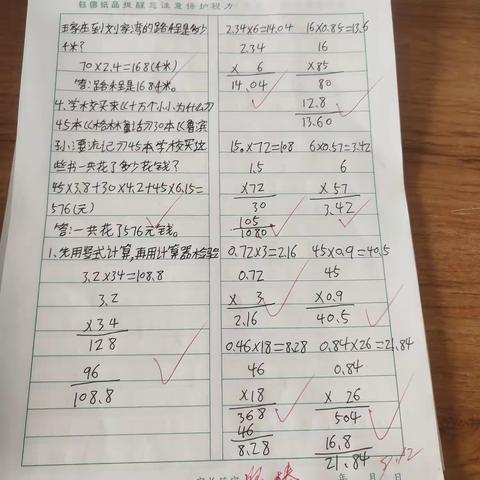 钰德纸品提醒您注意保护视力
王家庄到刘家湾的路程是多少
千米?
70×2.4=168(千米)
答:路程是168千米。
4.学校买来《十万个小小为什么》
45本《格林童话》30本《鲁滨
孙漂流记》45本学校买这
些书一共花了多少花钱?
45×3.8+30×4.2+45×6.15=
576(元)
答:一共花了576元钱。
1.先用竖式计算,再用计算器检验
3.2×34=108.8
3.2
×34
128
96
108.8
2.34×6=14.04 16×0.85=13.6
2.34 16
× 6 ×85
14.04 80
12.8
13.60
15×72=108 6×0.57=3.42
1.5 6
×72 ×57
30 3.42
105
1080
0.72×3=2.16 45×0.9=40.5
0.72 45
× 3 ×0.9
2.16 40.5
0.46×18=8.28 0.84×26=21.84
46 0.84
×18 × 26
368 504
46 16.8
8.28 21.84
年 月 日
9.12